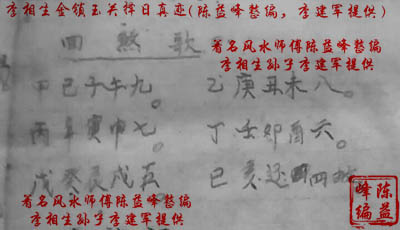 李相生金锁玉关择日真恋(陈益峰整编，李建军提供)
四煞歌
著名风水师傅陈益峰整编
李相生孙子李建军提供
甲己子午九。 乙庚丑未八。
丙辛寅申七。 丁壬卯酉六。
戊癸辰戌五 巳亥还四
著名风水师傅陈益峰整编
李相生孙子李建军提供
陈益峰编